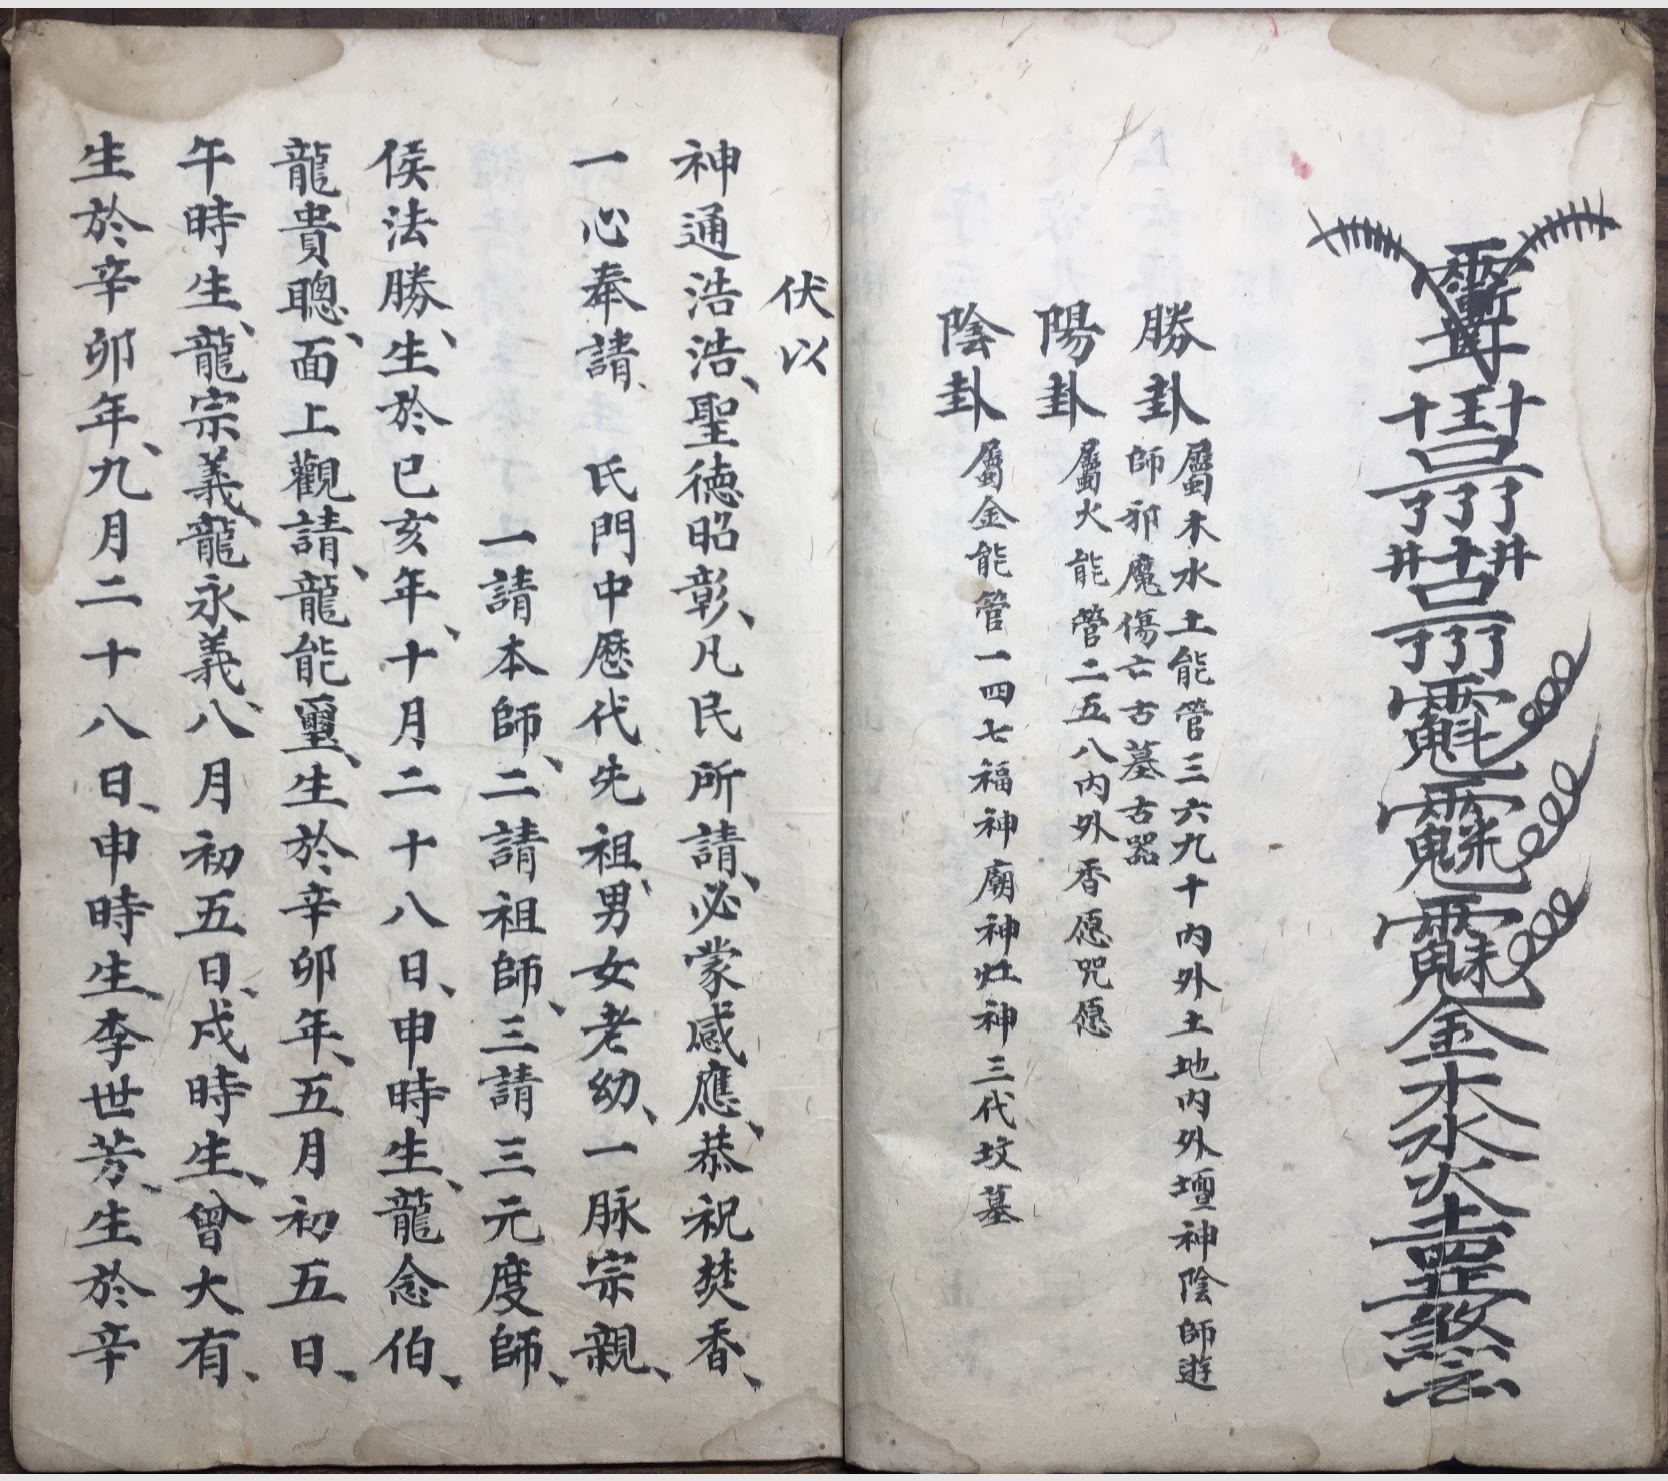 金水木水火土
勝卦
屬木水土能管三六九十內外土地內外壇神陰師遊
師邪魔傷亡古墓古器
陽卦
屬火能管二五八內外香愿咒愿
陰卦
屬金能管一四七福神廟神灶神三代坟墓
伏以
神通浩浩、聖徳昭彰、凡民所請、必蒙感應、恭祝焚香、
一心奉請、氏門中歷代先祖、男女老幼、一脉宗親、
一請本師、二請祖師、三請三元度師、
侯法勝、生於已亥年、十月二十八日、申時生、龍念伯、
龍貴聰、面上觀請、龍能璽、生於辛卯年、五月初五日、
午時生、龍宗義、龍永義、八月初五日、戍時生、曾大有、
生於辛卯年、九月二十八日、申時生、李世芳、生於辛